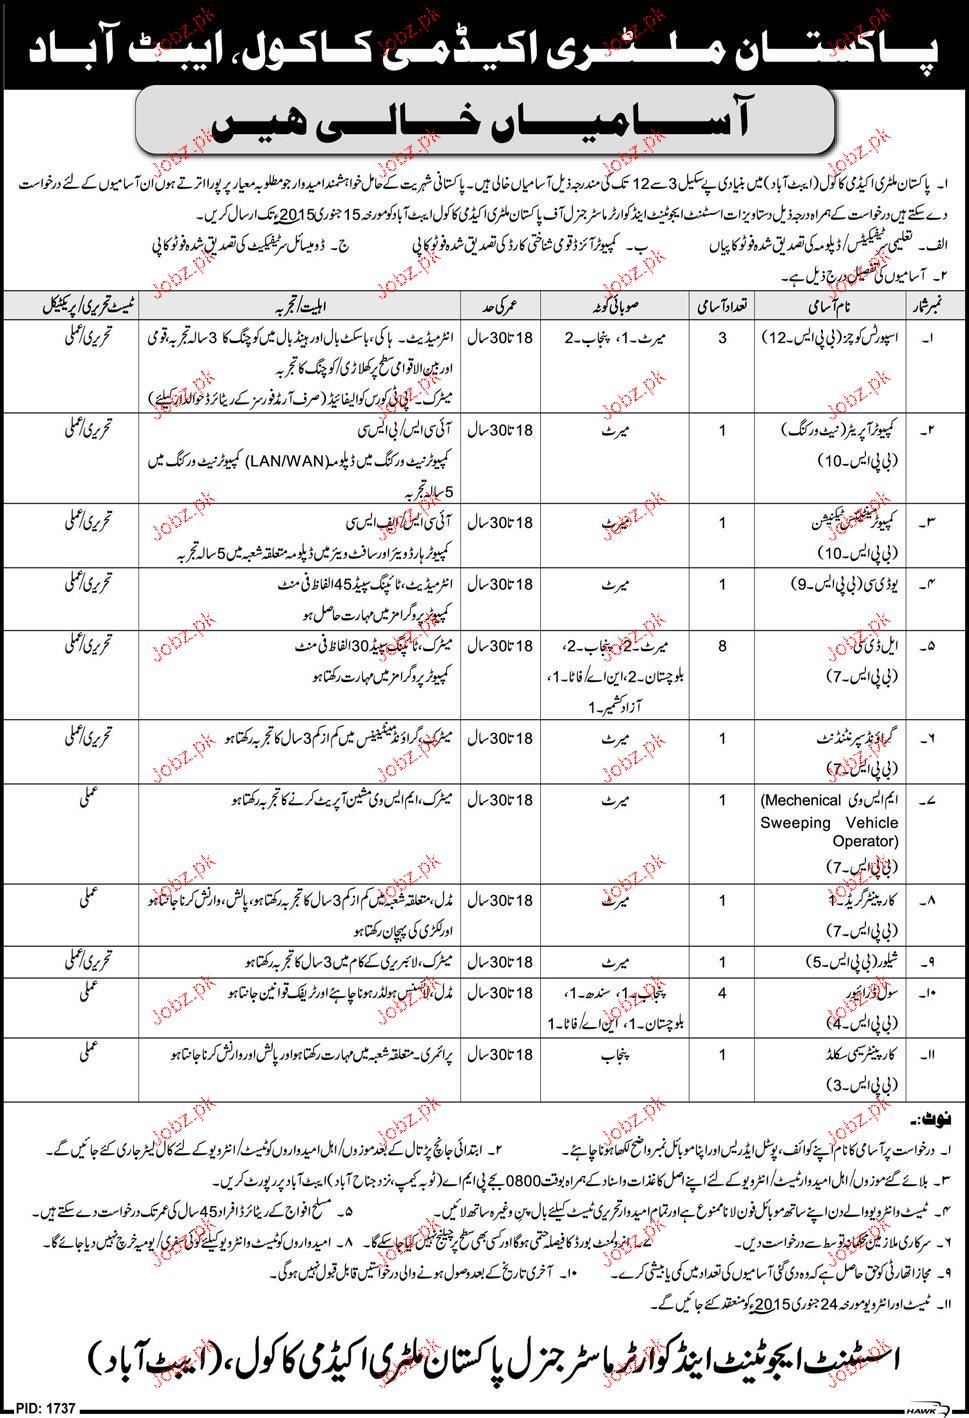 پاکستان ملٹری اکیڈمی کاکول، ایبٹ آباد
آسامیاں خالی ہیں
۱۔ پاکستان ملٹری اکیڈمی کاکول (ایبٹ آباد) میں بنیادی پے سکیل 3 سے 12 تک کی مندرجہ ذیل آسامیاں خالی ہیں۔ پاکستانی شہریت کے حامل خواہشمند امیدوار جو مطلوبہ معیار پر پورا اترتے ہوں ان آسامیوں کے لئے درخواست
دے سکتے ہیں درخواست کے ہمراہ درجہ ذیل دستاویزات اسسٹنٹ ایجوٹینٹ اینڈ کوارٹر ماسٹر جنرل آف پاکستان ملٹری اکیڈمی کاکول ایبٹ آباد کو مورخہ 15 جنوری 2015ء تک ارسال کریں۔
الف۔ تعلیمی سرٹیفکیٹس/ڈپلومہ کی تصدیق شدہ فوٹو کاپیاں ب۔ کمپیوٹرائزڈ قومی شناختی کارڈ کی تصدیق شدہ فوٹو کاپی ج۔ ڈومیسائل سرٹیفکیٹ کی تصدیق شدہ فوٹو کاپی
۲۔ آسامیوں کی تفصیل درج ذیل ہے۔
نمبر شمار نام آسامی تعداد آسامی صوبائی کوٹہ عمر کی حد اہلیت/تجربہ ٹیسٹ تحریری/پریکٹیکل
۱۔ اسپورٹس کوچز (بی پی ایس۔12) 3 میرٹ۔1، پنجاب۔2 18 تا 30 سال انٹرمیڈیٹ۔ ہاکی، باسکٹ بال اور ہینڈ بال میں کوچنگ کا 3 سالہ تجربہ، قومی تحریری/عملی
اور بین الاقوامی سطح پر کھلاڑی/کوچنگ کا تجربہ
میٹرک۔ پی ٹی کورس کوالیفائیڈ (صرف آرمڈ فورسز کے ریٹائرڈ حوالدار کیلئے)
۲۔ کمپیوٹر آپریٹر (نیٹ ورکنگ) 1 میرٹ 18 تا 30 سال آئی سی ایس/بی ایس سی تحریری/عملی
(بی پی ایس۔10) کمپیوٹر نیٹ ورکنگ میں ڈپلومہ (LAN/WAN) کمپیوٹر نیٹ ورکنگ میں
5 سالہ تجربہ
۳۔ کمپیوٹر مینٹیننس ٹیکنیشن 1 میرٹ 18 تا 30 سال آئی سی ایس/ایف ایس سی تحریری/عملی
(بی پی ایس۔10) کمپیوٹر ہارڈ ویئر اور سافٹ ویئر میں ڈپلومہ متعلقہ شعبہ میں 5 سالہ تجربہ
۴۔ یو ڈی سی (بی پی ایس۔9) 1 میرٹ 18 تا 30 سال انٹرمیڈیٹ، ٹائپنگ سپیڈ 45 الفاظ فی منٹ تحریری/عملی
کمپیوٹر پروگرامز میں مہارت حاصل ہو
۵۔ ایل ڈی سی 8 میرٹ۔2، پنجاب۔2، 18 تا 30 سال میٹرک، ٹائپنگ سپیڈ 30 الفاظ فی منٹ تحریری/عملی
(بی پی ایس۔7) بلوچستان۔2، این اے/فاٹا۔1، کمپیوٹر پروگرامز میں مہارت رکھتا ہو
آزاد کشمیر۔1
۶۔ گراؤنڈ سپرنٹنڈنٹ 1 میرٹ 18 تا 30 سال میٹرک، گراؤنڈ مینٹیننس میں کم از کم 3 سال کا تجربہ رکھتا ہو تحریری/عملی
(بی پی ایس۔7)
۷۔ ایم ایس وی (Mechenical 1 میرٹ 18 تا 30 سال میٹرک، ایم ایس وی مشین آپریٹ کرنے کا تجربہ رکھتا ہو عملی
Sweeping Vehicle
Operator)
(بی پی ایس۔7)
۸۔ کارپینٹر گریڈ۔1 1 میرٹ 18 تا 30 سال مڈل، متعلقہ شعبہ میں کم از کم 3 سال کا تجربہ رکھتا ہو، پالش، وارنش کرنا جانتا ہو عملی
(بی پی ایس۔7) اور لکڑی کی پہچان رکھتا ہو
۹۔ شیلور (بی پی ایس۔5) 1 میرٹ 18 تا 30 سال میٹرک، لائبریری کے کام میں 3 سال کا تجربہ رکھتا ہو تحریری/عملی
۱۰۔ سول ڈرائیور 4 پنجاب۔1، سندھ۔1، 18 تا 30 سال مڈل، لائسنس ہولڈر ہونا چاہئے اور ٹریفک قوانین جانتا ہو عملی
(بی پی ایس۔4) بلوچستان۔1، این اے/فاٹا۔1
۱۱۔ کارپینٹر سیمی سکلڈ 1 پنجاب 18 تا 30 سال پرائمری۔ متعلقہ شعبہ میں مہارت رکھتا ہو اور پالش اور وارنش کرنا جانتا ہو عملی
(بی پی ایس۔3)
نوٹ:۔
۱۔ درخواست پر آسامی کا نام اپنے کوائف، پوسٹل ایڈریس اور اپنا موبائل نمبر واضح لکھا ہونا چاہئے۔ ۲۔ ابتدائی جانچ پڑتال کے بعد موزوں/اہل امیدواروں کو ٹیسٹ/انٹرویو کے لئے کال لیٹر جاری کئے جائیں گے۔
۳۔ بلائے گئے موزوں/اہل امیدوار ٹیسٹ/انٹرویو کے لئے اپنے اصل کاغذات و اسناد کے ہمراہ بوقت 0800 بجے پی ایم اے (ٹوبہ کیمپ، نزد جناح آباد) ایبٹ آباد پر رپورٹ کریں۔
۴۔ ٹیسٹ انٹرویو والے دن اپنے ساتھ موبائل فون لانا ممنوع ہے اور تمام امیدوار تحریری ٹیسٹ کیلئے بال پن وغیرہ ساتھ لائیں۔ ۵۔ مسلح افواج کے ریٹائرڈ افراد 45 سال کی عمر تک درخواست دے سکتے ہیں۔
۶۔ سرکاری ملازمین محکمانہ توسط سے درخواست دیں۔ ۷۔ انرولمنٹ بورڈ کا فیصلہ حتمی ہوگا اور کسی بھی سطح پر چیلنج نہیں کیا جا سکے گا۔ ۸۔ امیدواروں کو ٹیسٹ و انٹرویو کیلئے کوئی سفری/یومیہ خرچ نہیں دیا جائے گا۔
۹۔ مجاز اتھارٹی کو حق حاصل ہے کہ وہ دی گئی آسامیوں کی تعداد میں کمی یا بیشی کرے۔ ۱۰۔ آخری تاریخ کے بعد وصول ہونے والی درخواستیں قابل قبول نہیں ہوگی۔
۱۱۔ ٹیسٹ اور انٹرویو مورخہ 24 جنوری 2015ء کو منعقد کئے جائیں گے۔
اسسٹنٹ ایجوٹینٹ اینڈ کوارٹر ماسٹر جنرل پاکستان ملٹری اکیڈمی کاکول، (ایبٹ آباد)
PID: 1737
HAWK
Jobz.pk